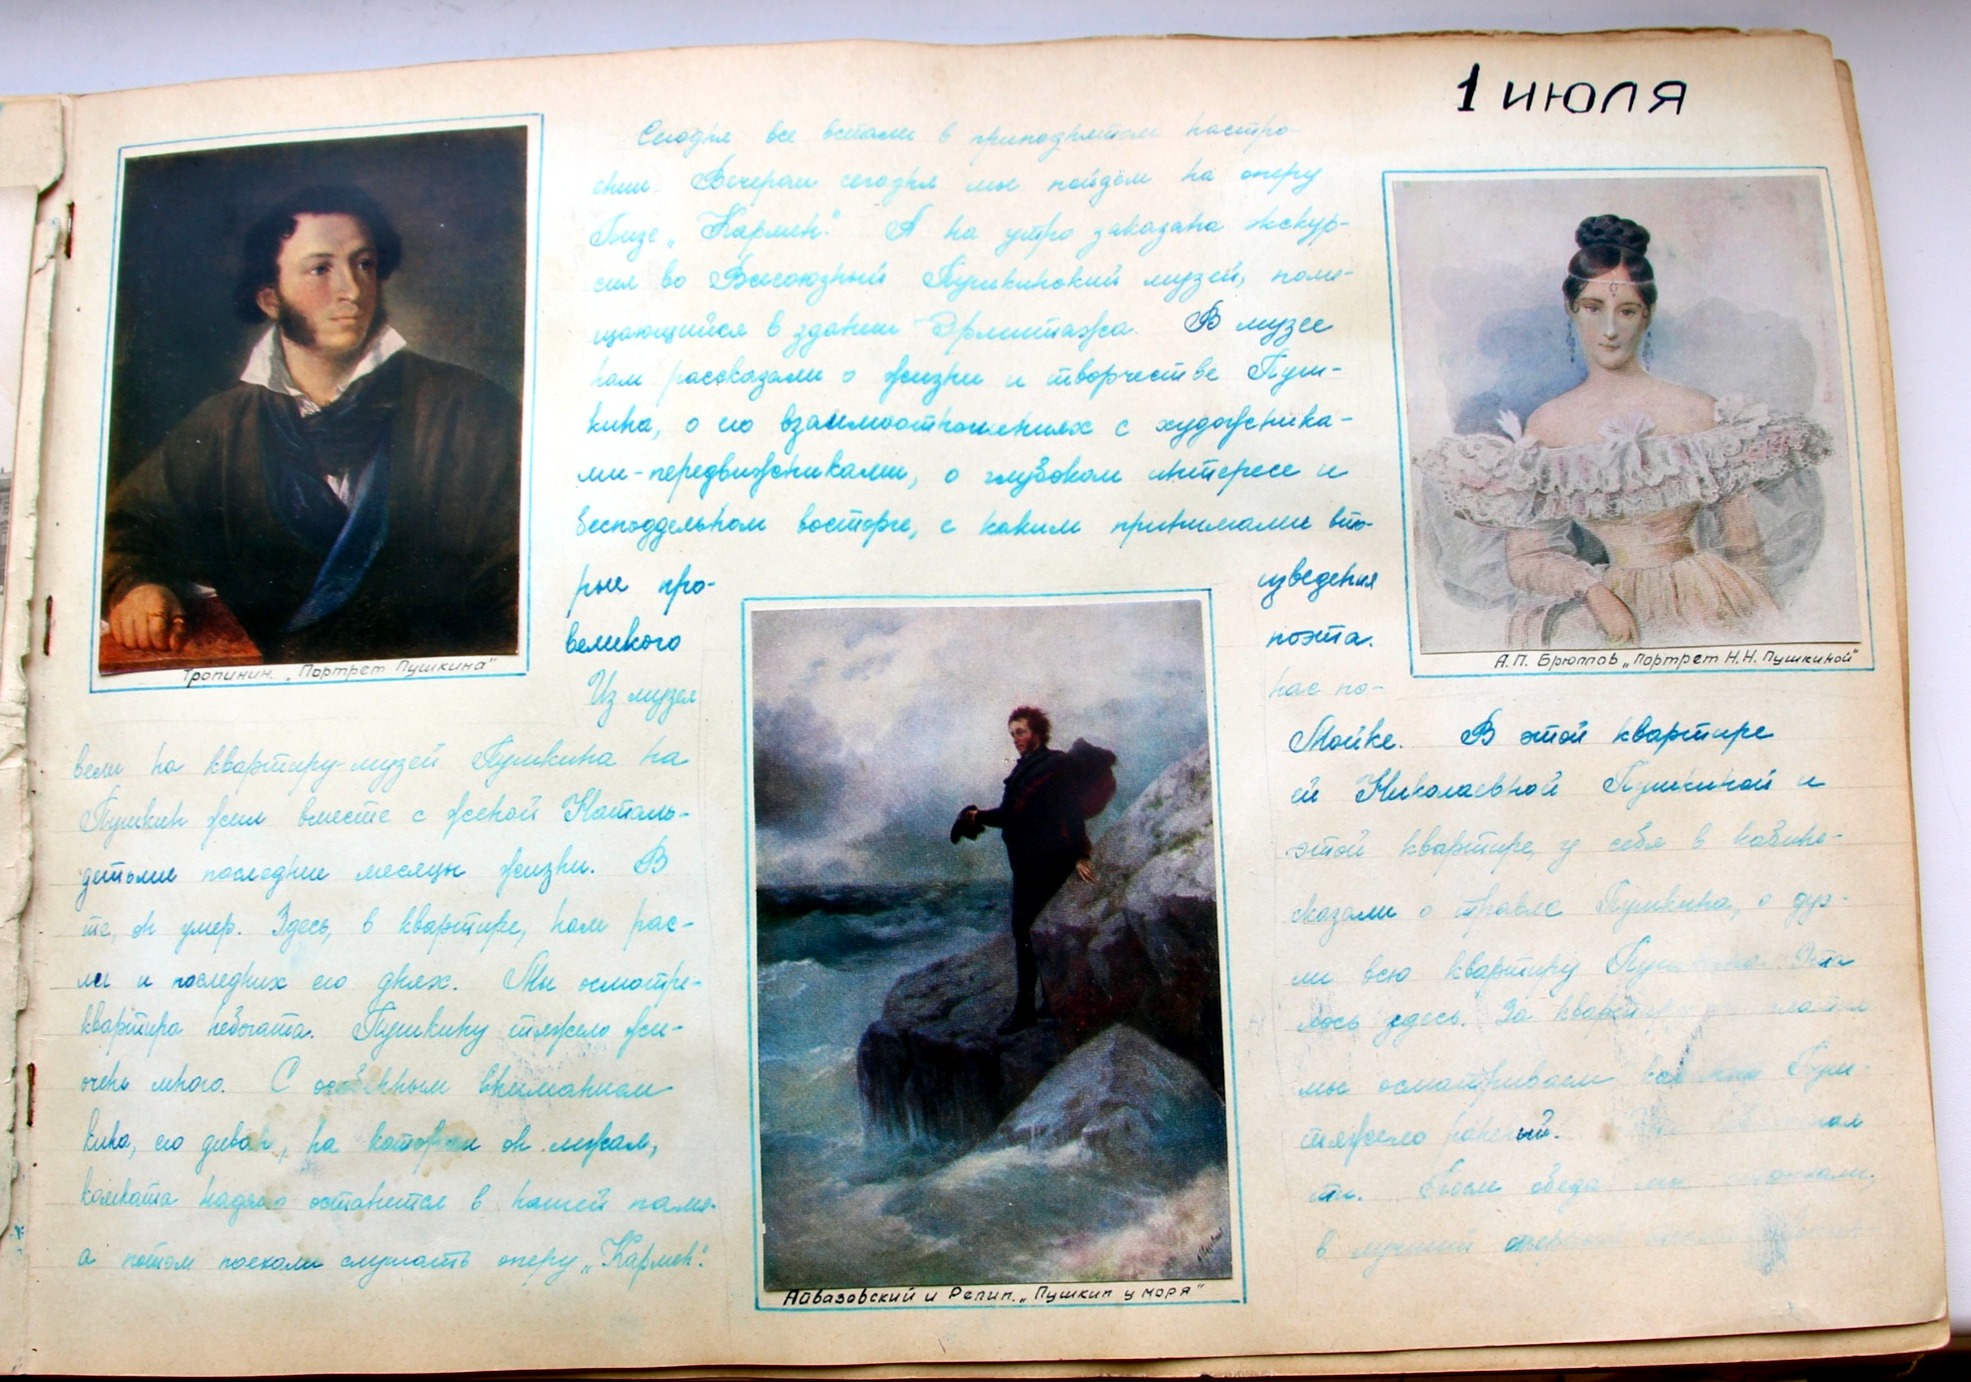 1 июля
Сегодня все встали в приподнятом настро-
ении. Вечером сегодня мы пойдём на оперу
Бизе „Кармен“. А на утро заказана экскур-
сия во Всесоюзный Пушкинский музей, поме-
щающийся в здании Эрмитажа. В музее
нам рассказали о жизни и творчестве Пуш-
кина, о его взаимоотношениях с художника-
ми-передвижниками, о глубоком интересе и
бесподдельном восторге, с каким принимали вто-
рые про- изведения
великого поэта.
Из музея нас по-
вели на квартиру-музей Пушкина на Мойке. В этой квартире
Пушкин жил вместе с женой Наталь- ей Николаевной Пушкиной и
детьми последние месяцы жизни. В этой квартире, у себя в кабине-
те, он умер. Здесь, в квартире, нам рас- сказали о травле Пушкина, о дуэ-
ли и последних его днях. Мы осмотре- ли всю квартиру Пушкина. Эта
квартира небогата. Пушкину тяжело жи- лось здесь. За квартиру платил
очень много. С особенным вниманием мы осматриваем Пуш-
кина, его диван, на котором он лежал, тяжело раненый.
комната надолго останется в нашей памя- ти. После обеда мы отдыхали,
а потом поехали слушать оперу „Кармен“. в лучший оперный
Тропинин. „Портрет Пушкина“
А.П. Брюллов „Портрет Н.Н. Пушкиной“
Айвазовский и Репин. „Пушкин у моря“